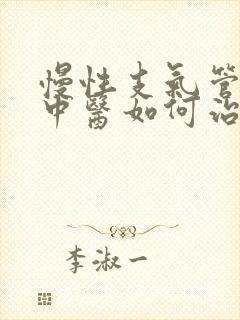 慢性支氣管
中醫如何治
李淑一